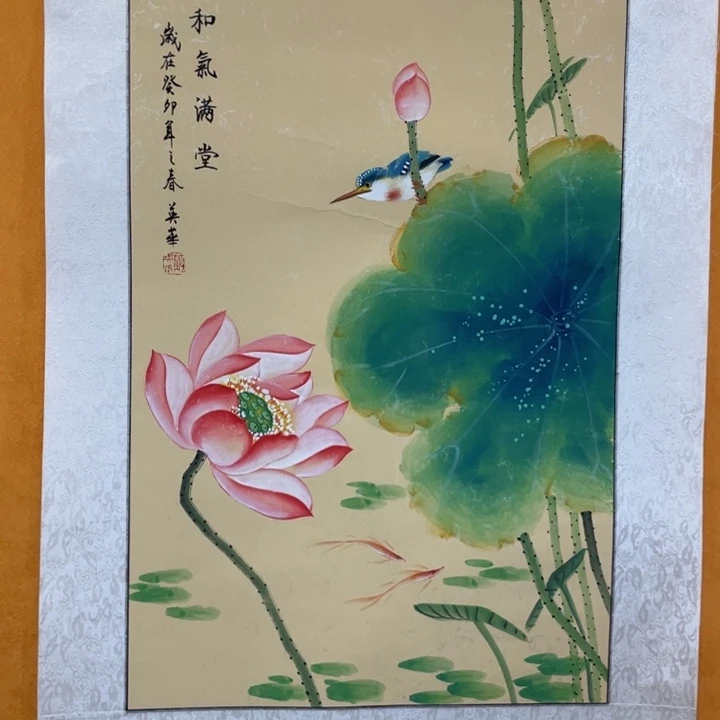 和氣满堂
歲在癸卯年之春 英華